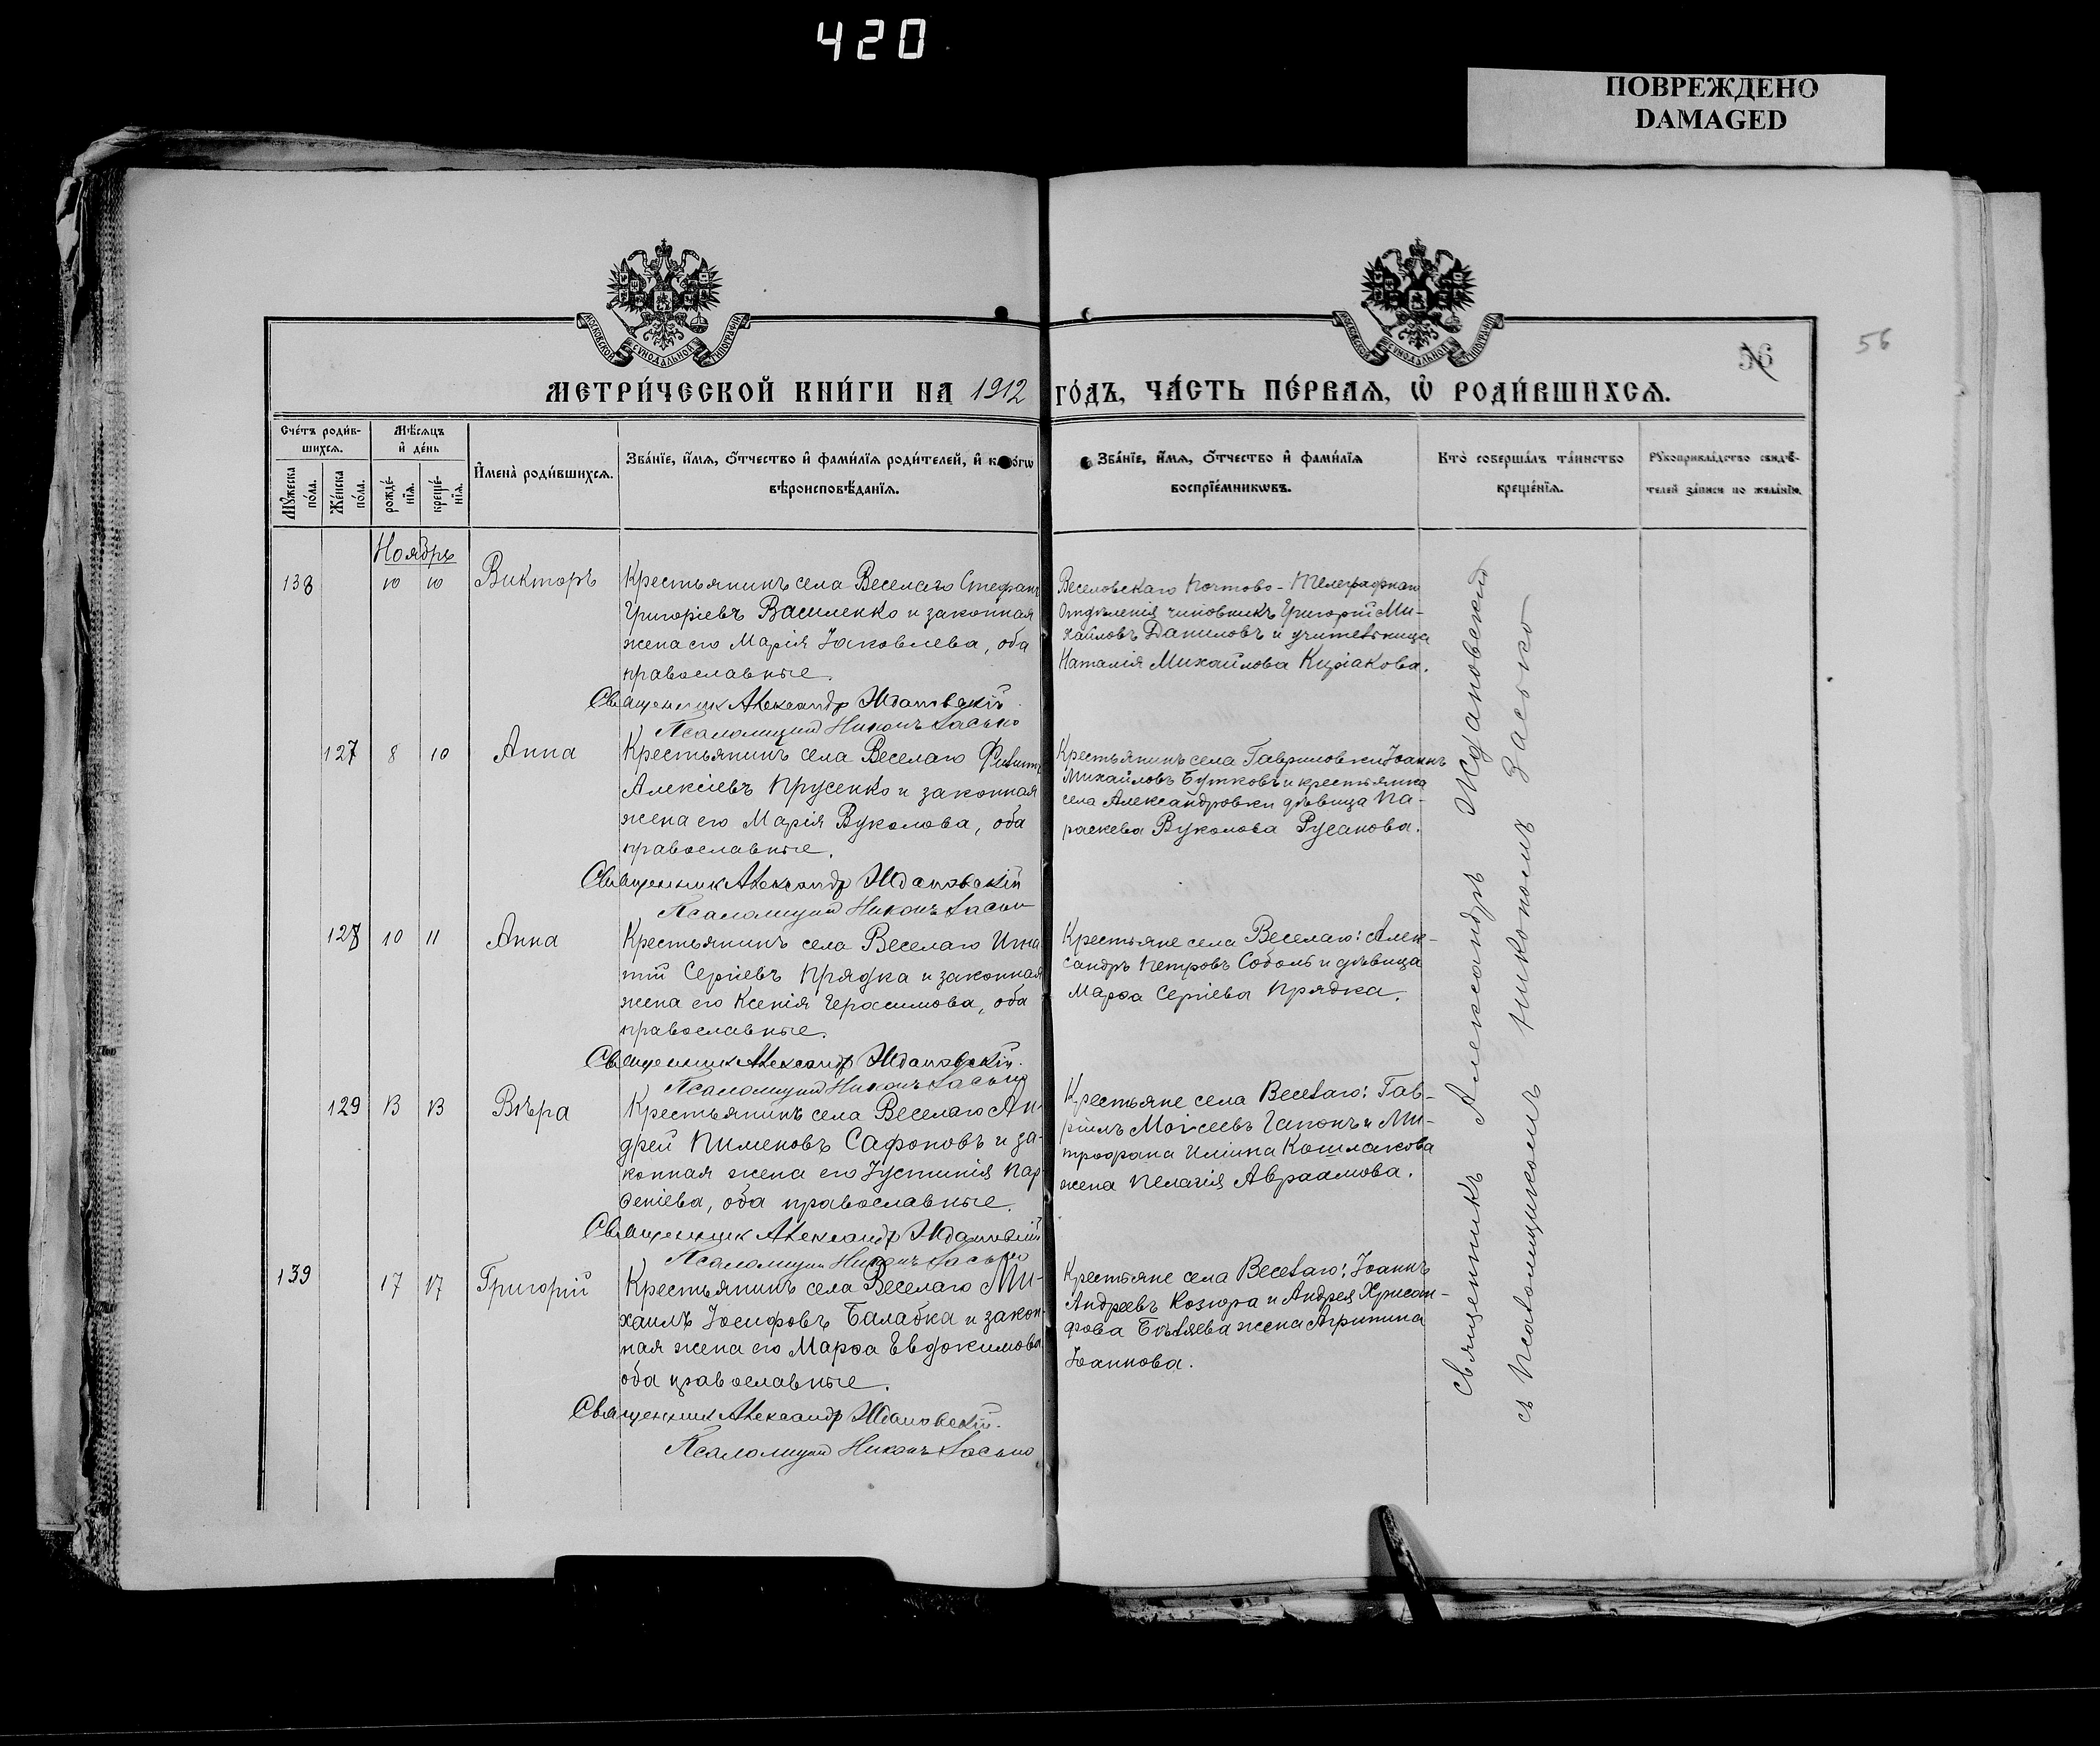 420
ПОВРЕЖДЕНО
DAMAGED
МОСКОВСКОЙ СѴНОДАЛЬНОЙ ТИПОГРАФІИ
МОСКОВСКОЙ СѴНОДАЛЬНОЙ ТИПОГРАФІИ
56
56
МЕТРИ́ЧЕСКОЙ КНИ́ГИ НА 1912 ГО́ДЪ, ЧА́СТЬ ПЕ́РВАЯ, Ѡ҆ РОДИ́ВШИХСЯ.
Счетъ родив-
шихся.
Мужеска
пола.
Женска
пола.
Мѣсяцъ
и день
рожде-
нія.
креще-
нія.
Имена родившихся.
Званіе, имя, отчество и фамилія родителей, и когѡ
вѣроисповѣданія.
Званіе, имя, отчество и фамилія
воспріемникѡвъ.
Кто совершалъ таинство
крещенія.
Рукоприкладство свидѣ-
телей записи по желанію.
Ноябрь
138 10 10 Викторъ
Крестьянинъ села Веселаго Стефанъ
Григоріевъ Василенко и законная
жена его Марія Іаковлева, оба
православные.
Священник Александр Ждановскій
Псаломщик Никонъ Засько
Веселовскаго Почтово-Телеграфнаго
Отдѣленія чиновникъ Григорій Ми-
хайловъ Даниловъ и учительница
Наталія Михайлова Киріакова.
127 8 10 Анна
Крестьянинъ села Веселаго Филиппъ
Алексіевъ Прусенко и законная
жена его Марія Вуколова, оба
православные.
Священник Александр Ждановскій
Псаломщик Никонъ Засько
Крестьянинъ села Гавриловки Іоаннъ
Михайловъ Бутковъ и крестьянка
села Александровки дѣвица Па-
раскева Вуколова Русанова.
128 10 11 Анна
Крестьянинъ села Веселаго Игна-
тій Сергіевъ Прядка и законная
жена его Ксенія Герасимова, оба
православные.
Священник Александр Ждановскій.
Псаломщик Никонъ Засько
Крестьяне села Веселаго: Алек-
сандръ Петровъ Соболь и дѣвица
Марѳа Сергіева Прядка.
129 13 13 Вѣра
Крестьянинъ села Веселаго Ан-
дрей Пименовъ Сафоновъ и за-
конная жена его Іустинія Пар-
ѳеніева, оба православные.
Священник Александр Ждановскій
Псаломщик Никонъ Засько
Крестьяне села Веселаго: Гав-
ріилъ Моѵсеевъ Гапонъ и Ми-
трофана Иліина Кошлакова
жена Пелагія Авраамова.
139 17 17 Григорій
Крестьянинъ села Веселаго Ми-
хаилъ Іосифовъ Балабка и закон-
ная жена его Марѳа Евдокимова
оба православные.
Священник Александр Ждановскій.
Псаломщик Никонъ Засько
Крестьяне села Веселаго: Іоаннъ
Андреевъ Козюра и Андрея Хрисан-
фова Бѣляева жена Агриппина
Іоаннова.
Священникъ Александръ Ждановскій
съ псаломщикомъ Никономъ Засько